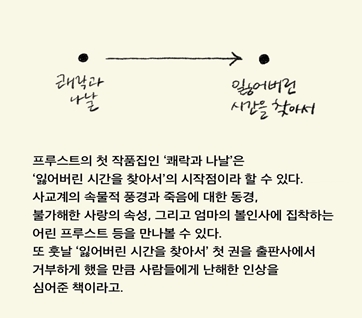 쾌락과
나날
잃어버린
시간을 찾아서
프루스트의 첫 작품집인 ‘쾌락과 나날’은
‘잃어버린 시간을 찾아서’의 시작점이라 할 수 있다.
사교계의 속물적 풍경과 죽음에 대한 동경,
불가해한 사랑의 속성, 그리고 엄마의 볼인사에 집착하는
어린 프루스트 등을 만나볼 수 있다.
또 훗날 ‘잃어버린 시간을 찾아서’ 첫 권을 출판사에서
거부하게 했을 만큼 사람들에게 난해한 인상을
심어준 책이라고.